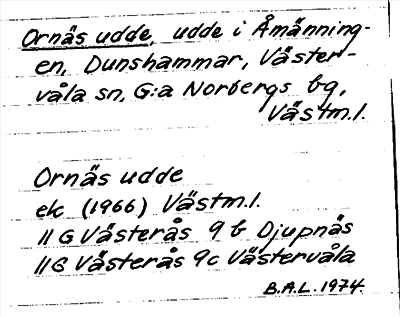 Ornäs udde, udde i Åmänning-
en, Dunshammar, Väster-
våla sn, G:a Norbergs bg,
Västm.l.
Ornäs udde
ek (1966) Västm.l.
11 G Västerås 9 b Djupnäs
11 G Västerås 9c Västervåla
B.A.L. 1974.